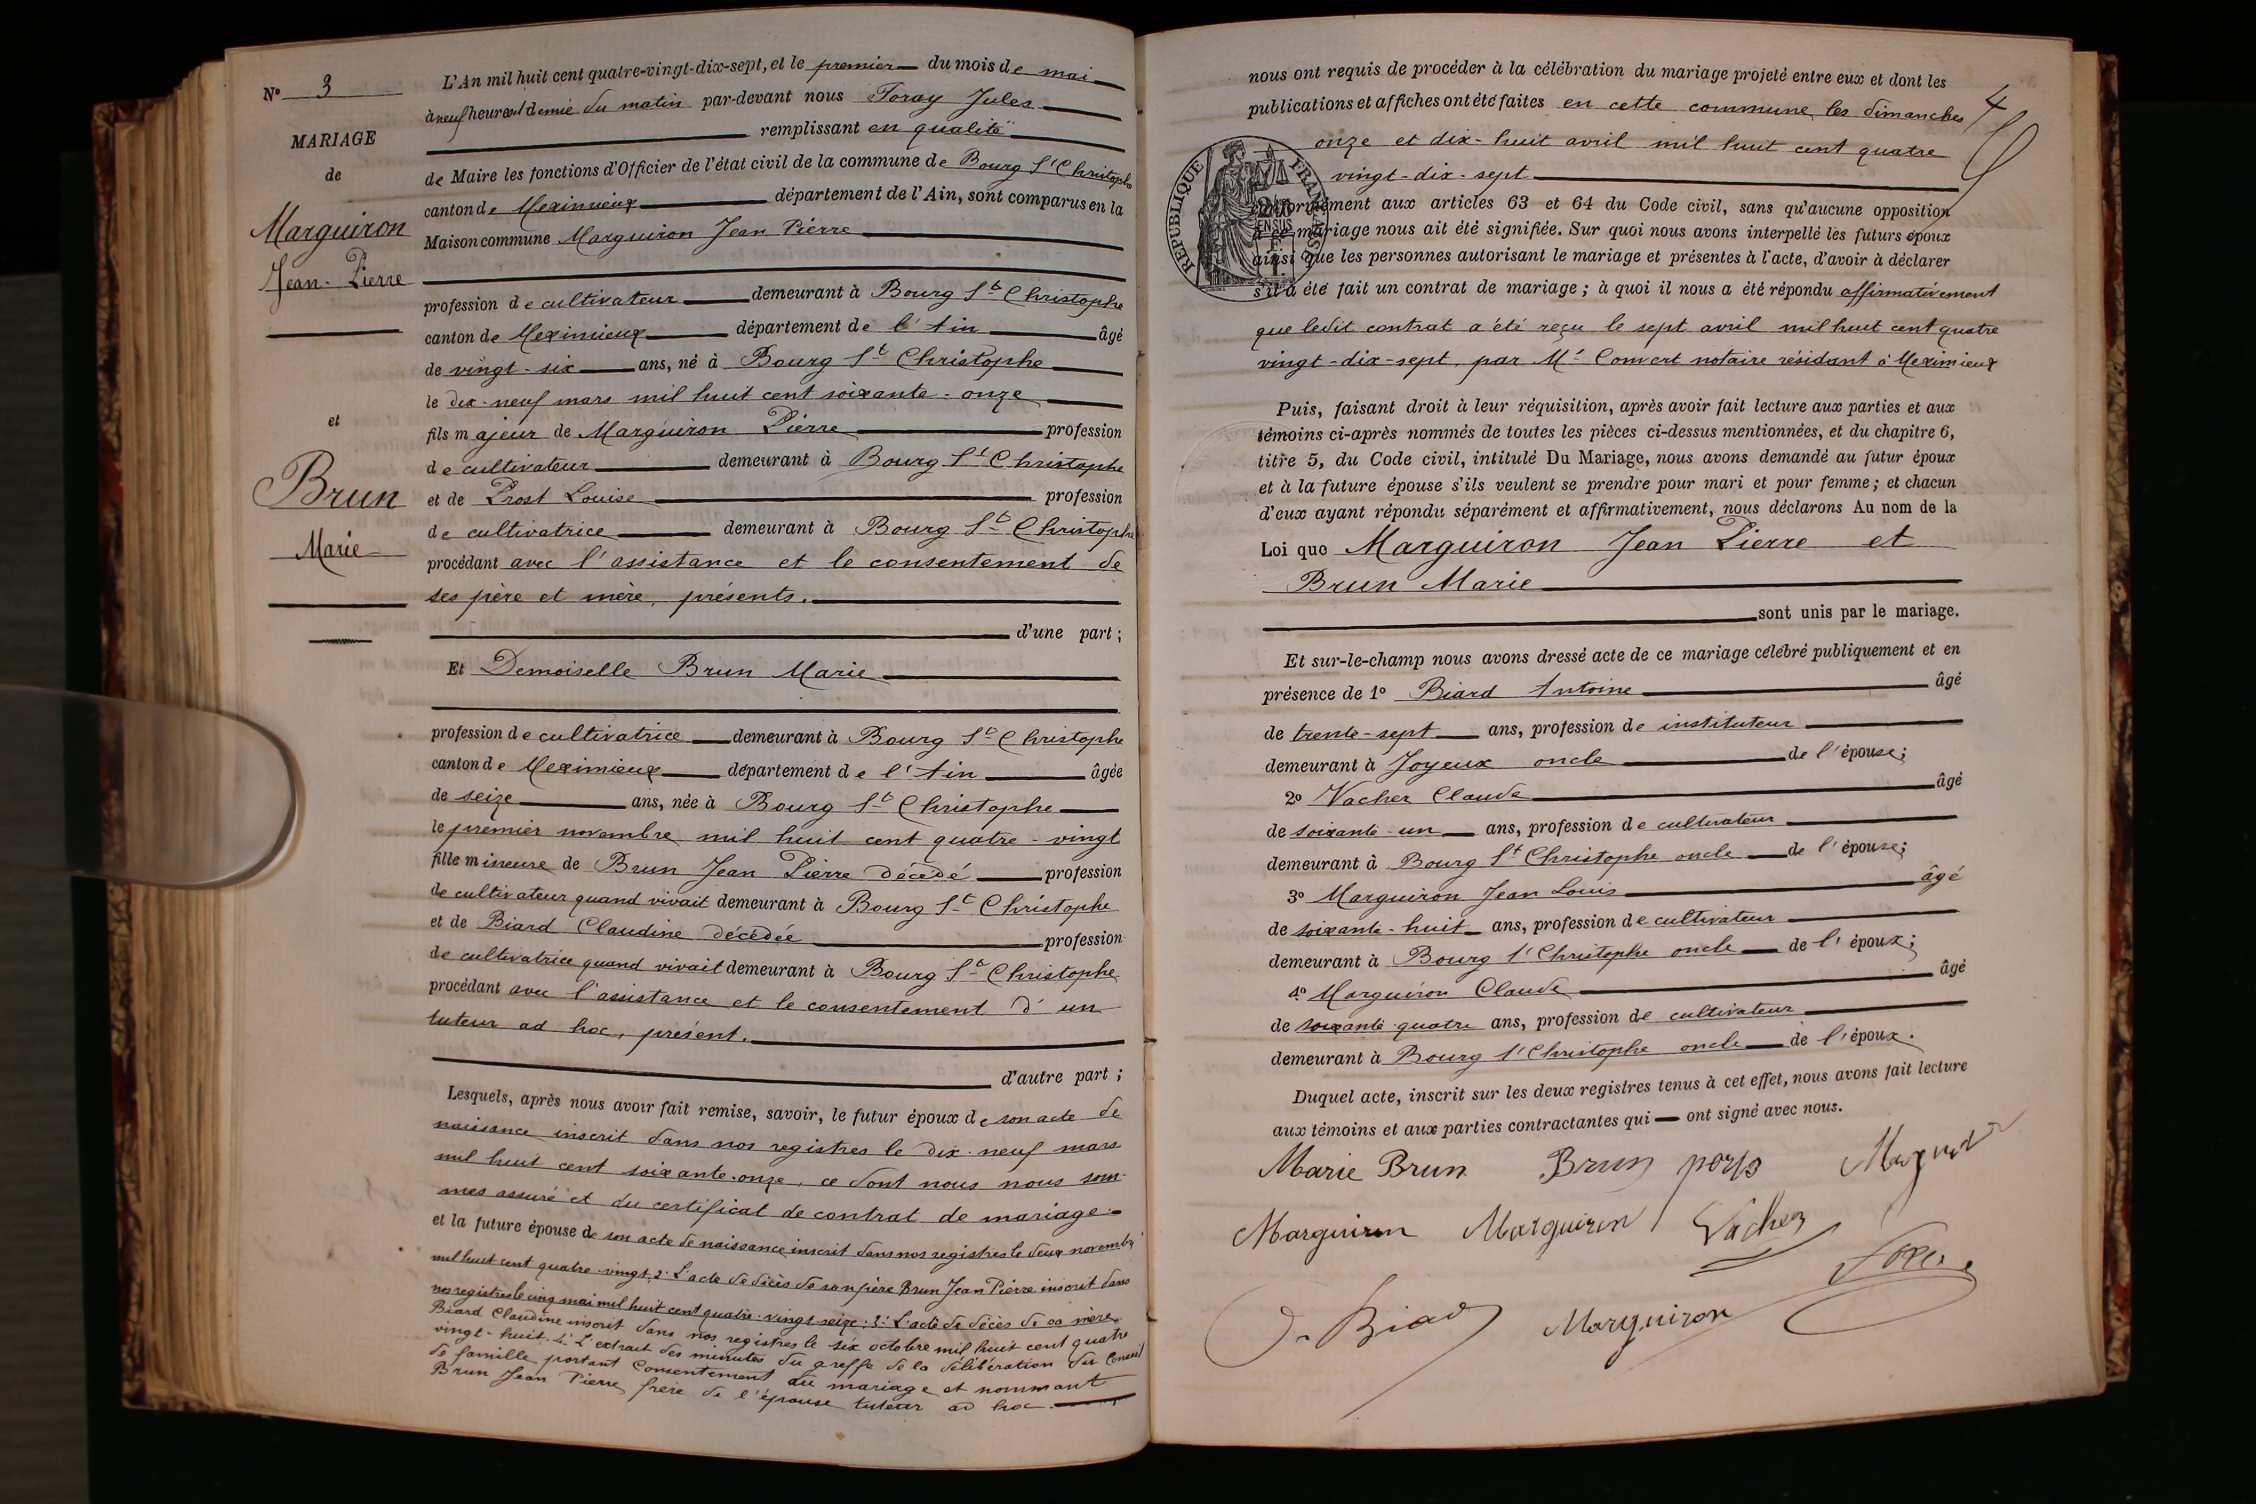 N° 3
MARIAGE
de
Marguiron
Jean-Pierre
et
Brun
Marie
L'An mil huit cent quatre-vingt-dix-sept, et le premier du mois de mai
à neuf heures et demie du matin par-devant nous Toray Jules
remplissant en qualité
de Maire les fonctions d'Officier de l'état civil de la commune de Bourg St Christophe
canton de Meximieux département de l'Ain, sont comparus en la
Maison commune Marguiron Jean Pierre
profession de cultivateur demeurant à Bourg St Christophe
canton de Meximieux département de l'Ain âgé
de vingt-six ans, né à Bourg St Christophe
le dix-neuf mars mil huit cent soixante-onze
fils majeur de Marguiron Pierre profession
de cultivateur demeurant à Bourg St Christophe
et de Prost Louise profession
de cultivatrice demeurant à Bourg St Christophe
procédant avec l'assistance et le consentement de
ses père et mère, présents.
d'une part ;
Et Demoiselle Brun Marie
profession de cultivatrice demeurant à Bourg St Christophe
canton de Meximieux département de l'Ain âgée
de seize ans, née à Bourg St Christophe
le premier novembre mil huit cent quatre-vingt
fille mineure de Brun Jean Pierre décédé profession
de cultivateur quand vivait demeurant à Bourg St Christophe
et de Biard Claudine décédée profession
de cultivatrice quand vivait demeurant à Bourg St Christophe
procédant avec l'assistance et le consentement d'un
tuteur ad hoc, présent.
d'autre part ;
Lesquels, après nous avoir fait remise, savoir, le futur époux de son acte de
naissance inscrit dans nos registres le dix-neuf mars
mil huit cent soixante-onze, ce dont nous nous som-
mes assuré et du certificat de contrat de mariage.
et la future épouse de son acte de naissance inscrit dans nos registres le deux novembre
mil huit cent quatre-vingt, 2° L'acte de décès de son père Brun Jean Pierre inscrit dans
nos registres le cinq mai mil huit cent quatre-vingt-seize ; 3° L'acte de décès de sa mère
Biard Claudine inscrit dans nos registres le six octobre mil huit cent quatre
vingt-huit. 4° L'extrait des minutes du greffe de la délibération du Conseil
de famille portant Consentement au mariage et nommant
Brun Jean Pierre, frère de l'épouse tuteur ad hoc.
4
nous ont requis de procéder à la célébration du mariage projeté entre eux et dont les
publications et affiches ont été faites en cette commune, les dimanches
onze et dix-huit avril mil huit cent quatre
vingt-dix-sept
RÉPUBLIQUE FRANÇAISE
conformément aux articles 63 et 64 du Code civil, sans qu'aucune opposition
à ce mariage nous ait été signifiée. Sur quoi nous avons interpellé les futurs époux
ainsi que les personnes autorisant le mariage et présentes à l'acte, d'avoir à déclarer
s'il a été fait un contrat de mariage ; à quoi il nous a été répondu affirmativement
que ledit contrat a été reçu le sept avril mil huit cent quatre
vingt-dix-sept, par Me Convert notaire résidant à Meximieux
Puis, faisant droit à leur réquisition, après avoir fait lecture aux parties et aux
témoins ci-après nommés de toutes les pièces ci-dessus mentionnées, et du chapitre 6,
titre 5, du Code civil, intitulé Du Mariage, nous avons demandé au futur époux
et à la future épouse s'ils veulent se prendre pour mari et pour femme ; et chacun
d'eux ayant répondu séparément et affirmativement, nous déclarons Au nom de la
Loi que Marguiron Jean Pierre et
Brun Marie
sont unis par le mariage.
Et sur-le-champ nous avons dressé acte de ce mariage célébré publiquement et en
présence de 1° Biard Antoine âgé
de trente-sept ans, profession de instituteur
demeurant à Joyeux oncle de l'épouse ;
2° Vacher Claude âgé
de soixante-un ans, profession de cultivateur
demeurant à Bourg St Christophe oncle de l'épouse ;
3° Marguiron Jean Louis âgé
de soixante-huit ans, profession de cultivateur
demeurant à Bourg St Christophe oncle de l'époux ;
4° Marguiron Claude âgé
de soixante-quatre ans, profession de cultivateur
demeurant à Bourg St Christophe oncle de l'époux.
Duquel acte, inscrit sur les deux registres tenus à cet effet, nous avons fait lecture
aux témoins et aux parties contractantes qui ont signé avec nous.
Marie Brun Brun
Marguiron Marguiron Vacher
Biard Marguiron